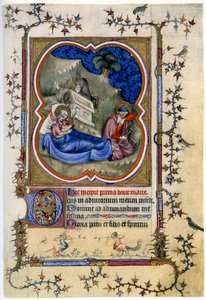 Hic incipit prima beate marie.
Deus in adiutorium meum inten
Domine ad adiuuandum me fe
stina.
Gloria patri et filio et spiritu